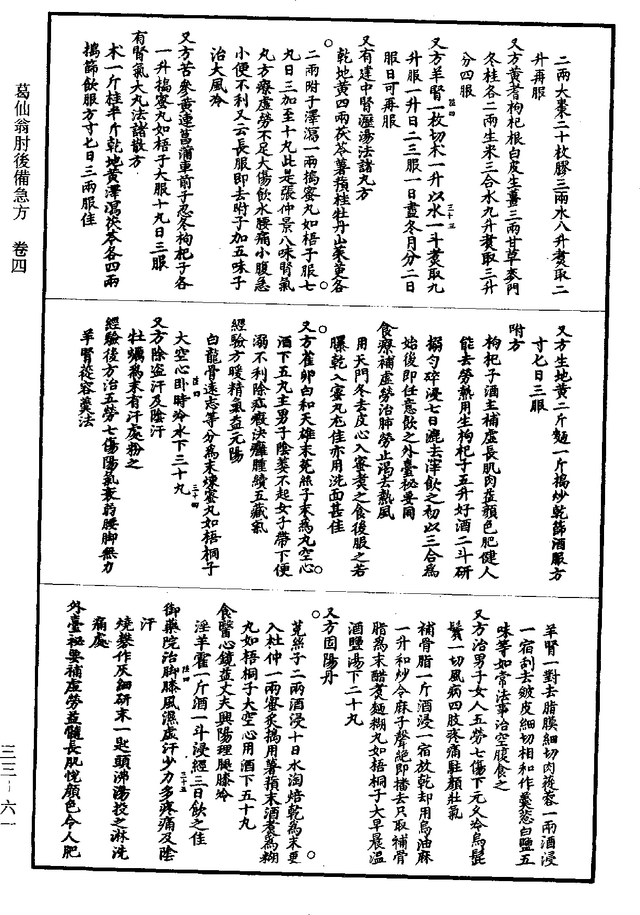 葛仙翁肘後備急方　卷四
二兩大棗二十枚膠三兩水八升煮取二
升再服
又方黃耆枸杞根白皮生薑三兩甘草麥門
冬桂各二兩生米三合水九升煮取三升
分四服
又方羊腎一枚切朮一升以水一斗煮取九
升服一升日二三服一日盡冬月分二日
服日可再服
又有建中腎瀝湯法諸丸方
乾地黃四兩茯苓薯蕷桂牡丹山茱萸各
二兩附子澤瀉一兩搗蜜丸如梧子服七
丸日三加至十丸此是張仲景八味腎氣
丸方療虛勞不足大傷飲水腰痛小腹急
小便不利又云長服即去附子加五味子
治大風冷
又方苦參黃連菖蒲車前子忍冬枸杞子各
一升搗蜜丸如梧子大服十丸日三服
有腎氣大丸法諸散方
朮一斤桂半斤乾地黃澤瀉茯苓各四兩
搗篩飲服方寸七日三兩服佳
又方生地黃二斤麵一斤搗炒乾篩酒服方
寸七日三服
附方
枸杞子酒主補虛長肌肉益顏色肥健人
能去勞熱用生枸杞子五升好酒二斗研
搦勻碎浸七日漉去滓飲之初以三合為
始後即任意飲之外臺秘要同
食療補虛勞治肺勞止渴去熱風
用天門冬去皮心入蜜煮之食後服之若
曝乾入蜜丸尤佳亦用洗面甚佳
又方雀卵白和天雄末菟絲子末為丸空心
酒下五丸主男子陰萎不起女子帶下便
溺不利除疝瘕決癰腫續五藏氣
經驗方暖精氣益元陽
白龍骨遠志等分為末煉蜜丸如梧桐子
大空心臥時冷水下三十丸
又方除盜汗及陰汗
牡蠣為末有汗處粉之
經驗後方治五勞七傷陽氣衰弱腰腳無力
羊腎蓯容羹法
羊腎一對去脂膜細切肉蓯蓉一兩酒浸
一宿刮去皴皮細切相和作羹葱白鹽五
味等如常法事治空腹食之
又方治男子女人五勞七傷下元久冷烏髭
鬢一切風病四肢疼痛駐顏壯氣
補骨脂一斤酒浸一宿放乾却用烏油麻
一升和炒令麻子聲絕即播去只取補骨
脂為末醋煮麵糊丸如梧桐子大早晨溫
酒鹽湯下二十丸
又方固陽丹
菟絲子二兩酒浸十日水淘焙乾為末更
入杜仲一兩蜜炙搗用薯蕷末酒煮為糊
丸如梧桐子大空心用酒下五十丸
食醫心鏡益丈夫興陽理腿膝冷
淫羊藿一斤酒一斗浸經三日飲之佳
御藥院治腳膝風濕虛汗少力多疼痛及陰
汗
燒礬作灰細研末一匙頭沸湯投之淋洗
痛處
外臺祕要補虛勞益髓長肌悅顏色令人肥
三三－六一